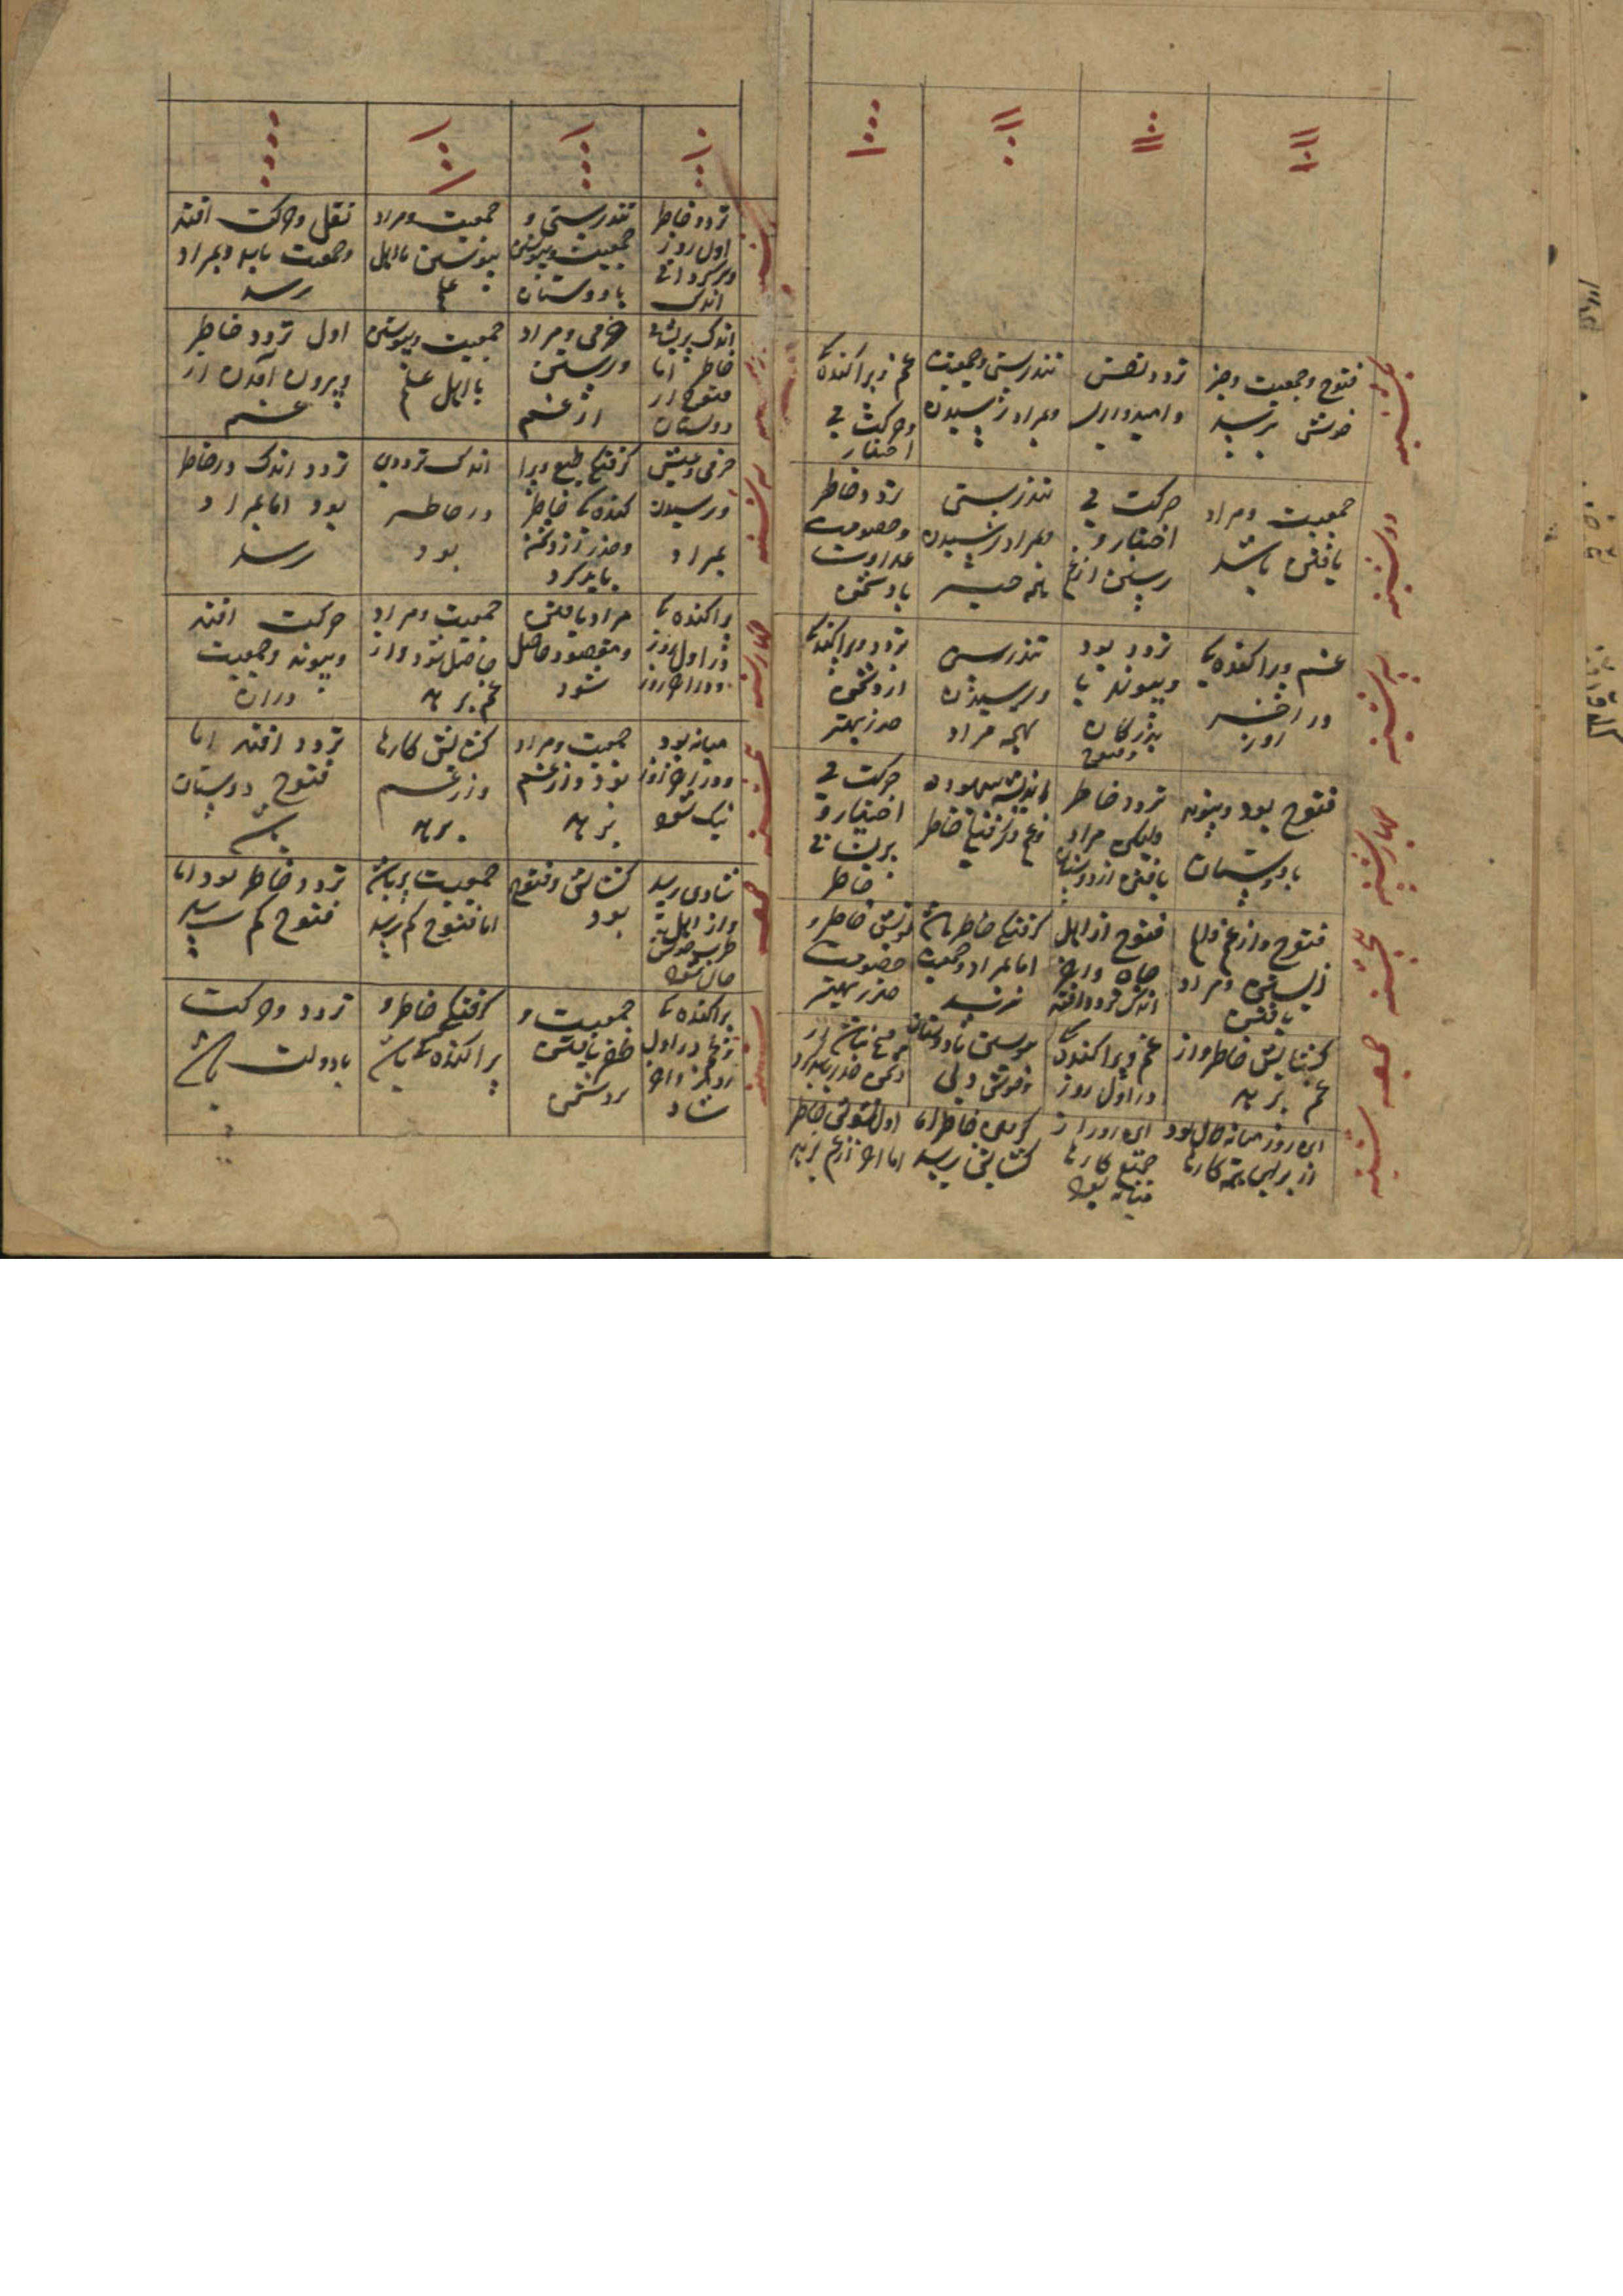 یکشنبه
فتوح و جمعیت و خبر
خوش برسد
تردد نفس
و امیدواری
تندرستی و جمعیت
و بمراد رسیدن
غم و پراکندگی
و حرکت بی
اختیار
دوشنبه
جمعیت و مراد
یافتن باشد
حرکت بی
اختیار و
رستن از غم
تندرستی
و بمراد رسیدن
تردد خاطر
و خصومت
عداوت
با دشمن
سه شنبه
غم و پراکندگی
در آخر
روز
تردد بود
و پیوند با
بزرگان
و فتوح
تندرستی
و رسیدن
بهمه مراد
تردد و پراکندگی
از دشمن
حذر بهتر
چهارشنبه
فتوح بود و پیوند
با دوستان
تردد خاطر
ولیکن مراد
یافتن از دوستان
و غم و گرفتگی خاطر
حرکت بی
اختیار و
پریشانی
خاطر
پنجشنبه
فتوح و از غم
و مراد
یافتن
فتوح از اهل
اندک تردد افتد
گرفتگی خاطر باشد
اما بمراد و جمعیت
خاطر و
خصومت
حذر بهتر
جمعه
گشایش خاطر و از
غم برهد
غم و پراکندگی
در اول روز
دشمن حذر باید کرد
شنبه
این روز میانه حال بود
از برای همه کارها
این روز از
جمیع کارها
میانه بود
خاطر اما
گشایش رسد
اول تشویش خاطر
اما آخر از غم برهد
تردد خاطر
اول روز
و سرگردانی
اندک
تندرستی و
جمعیت و پیوستن
با دوستان
جمعیت و مراد
پیوستن با اهل
علم
نقل و حرکت افتد
و جمعیت یابد و بمراد
رسد
اندک پریشانی
خاطر اما
فتوح از
دوستان
خرمی و مراد
و رستن
از غم
جمعیت و پیوستن
با اهل علم
اول تردد خاطر
و بیرون آمدن از
غم
سه شنبه
خرمی و عیش
و رسیدن
بمراد
گرفتگی طبع و پرا
کندگی خاطر
و حذر از دشمن
باید کرد
اندک ترددی
در خاطر
بود
تردد اندک در خاطر
بود اما بمراد
رسد
چهارشنبه
پراکندگی
در اول روز
و در آخر روز
مراد یافتن
و مقصود حاصل
شود
جمعیت و مراد
حاصل شود و از
غم برهد
حرکت افتد
و پیوند و جمعیت
در آن
پنجشنبه
میانه بود
و در آخر روز
نیک شود
جمعیت و مراد
بود و از غم
برهد
گشایش کارها
و از غم
برهد
تردد افتد اما
فتوح دوستان
باشد
جمعه
شادی رسد
و از اهل
طرب خوش
حال شود
گشایش و فتوح
بود
جمعیت باشد
اما فتوح کم رسد
تردد خاطر بود اما
فتوح کم رسد
شنبه
پراکندگی
و غم در اول
روز و آخر
شاد
جمعیت و
ظفر یافتن
بر دشمن
گرفتگی خاطر و
پراکندگی باشد
تردد و حرکت
با دولت باشد